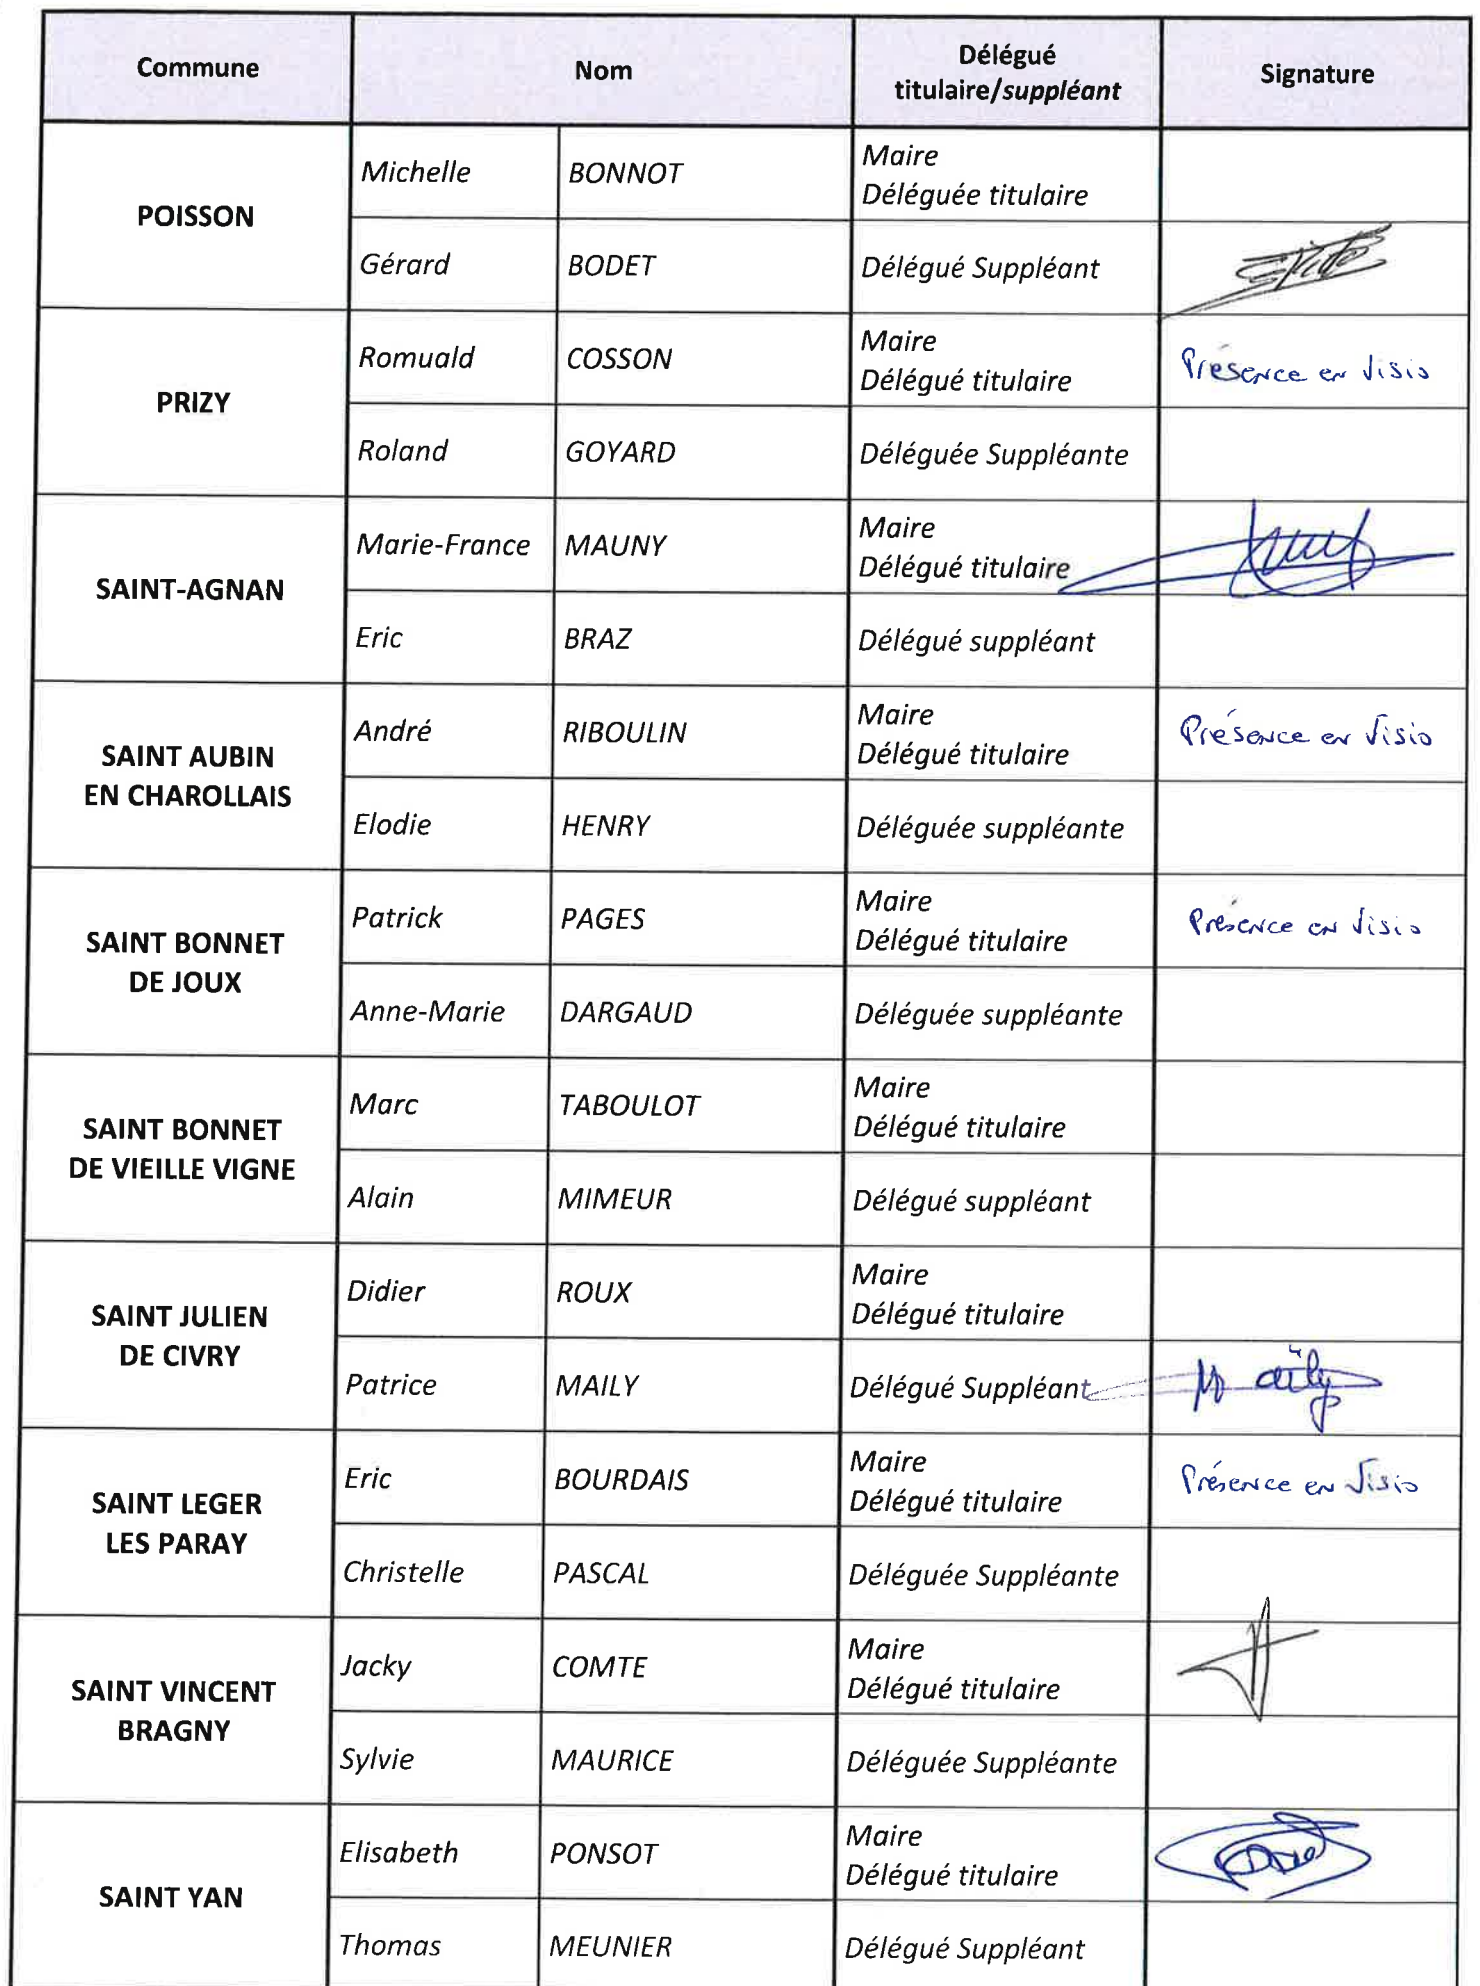 Commune
Nom
Délégué
titulaire/suppléant
Signature
POISSON
Michelle BONNOT
Maire
Déléguée titulaire
Gérard BODET
Délégué Suppléant
PRIZY
Romuald COSSON
Maire
Délégué titulaire
Présence en Visio
Roland GOYARD
Déléguée Suppléante
SAINT-AGNAN
Marie-France MAUNY
Maire
Délégué titulaire
Eric BRAZ
Délégué suppléant
SAINT AUBIN
EN CHAROLLAIS
André RIBOULIN
Maire
Délégué titulaire
Présence en Visio
Elodie HENRY
Déléguée suppléante
SAINT BONNET
DE JOUX
Patrick PAGES
Maire
Délégué titulaire
Présence en Visio
Anne-Marie DARGAUD
Déléguée suppléante
SAINT BONNET
DE VIEILLE VIGNE
Marc TABOULOT
Maire
Délégué titulaire
Alain MIMEUR
Délégué suppléant
SAINT JULIEN
DE CIVRY
Didier ROUX
Maire
Délégué titulaire
Patrice MAILY
Délégué Suppléant
SAINT LEGER
LES PARAY
Eric BOURDAIS
Maire
Délégué titulaire
Présence en Visio
Christelle PASCAL
Déléguée Suppléante
SAINT VINCENT
BRAGNY
Jacky COMTE
Maire
Délégué titulaire
Sylvie MAURICE
Déléguée Suppléante
SAINT YAN
Elisabeth PONSOT
Maire
Délégué titulaire
Thomas MEUNIER
Délégué Suppléant